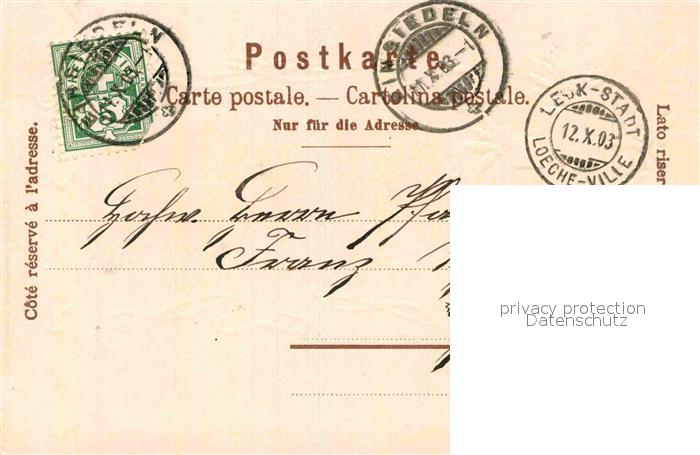 Postkarte.
Carte postale. — Cartolina postale.
Nur für die Adresse
Côté réservé à l'adresse.
Lato riser
EINSIEDELN
11.X.03
LEUK-STADT
12.X.03
LOECHE-VILLE
5
Hochw. Herrn Pfa
Franz
privacy protection
Datenschutz